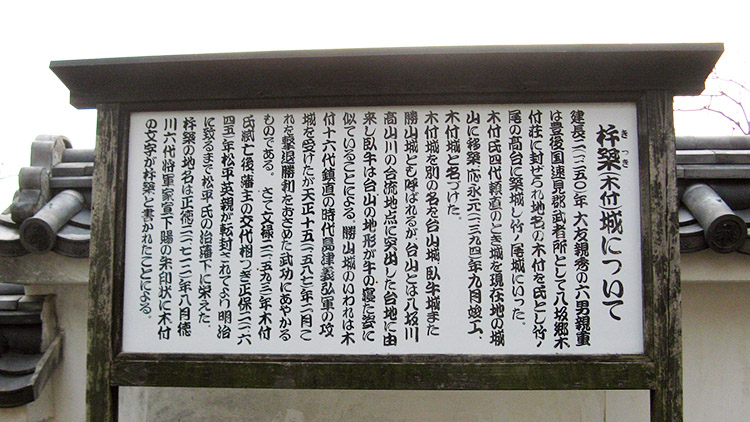 杵築(木付)城について
きつき
建長二(一二五〇)年大友親秀の六男親重
は豊後国速見郡武者所として八坂郷木
付荘に封ぜられ地名の木付を氏とし竹ノ
尾の高台に築城し竹ノ尾城にいった。
木付氏四代頼直のとき城を現在地の城
山に移築、応永元(一三九四)年九月竣工、
木付城と名づけた。
木付城を別の名を台山城、臥牛城また
勝山城とも呼ばれるが台山とは八坂川
高山川の合流地点に突出した台地に由
来し臥牛は台山の地形が牛の寝た姿に
似ていることによる。勝山城のいわれは木
付十六代鎮直の時代島津義弘軍の攻
城を受けたが天正十五(一五八七)年二月こ
れを撃退勝利をおさめた武功にあやかる
ものである。さて文禄二(一五九三)年木付
氏滅亡後藩主の交代相つぎ正保二(一六
四五)年松平英親が転封されてより明治
に致るまで松平氏の治藩下に栄えた。
杵築の地名は正徳二(一七一二)年八月徳
川六代将軍家宣下賜の朱印状に木付
の文字が杵築と書かれたことによる。